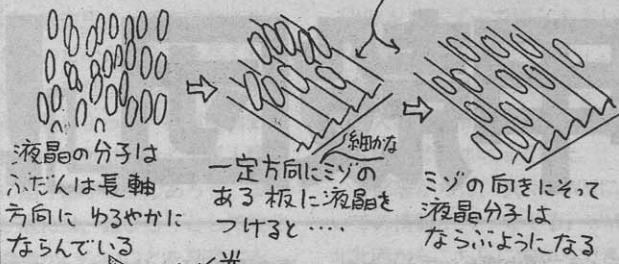 液晶の分子は
ふだんは長軸
方向に ゆるやかに
ならんでいる
細かな
一定方向にミゾの
ある 板に液晶を
つけると・・・・
ミゾの向きにそって
液晶分子は
ならぶようになる
光